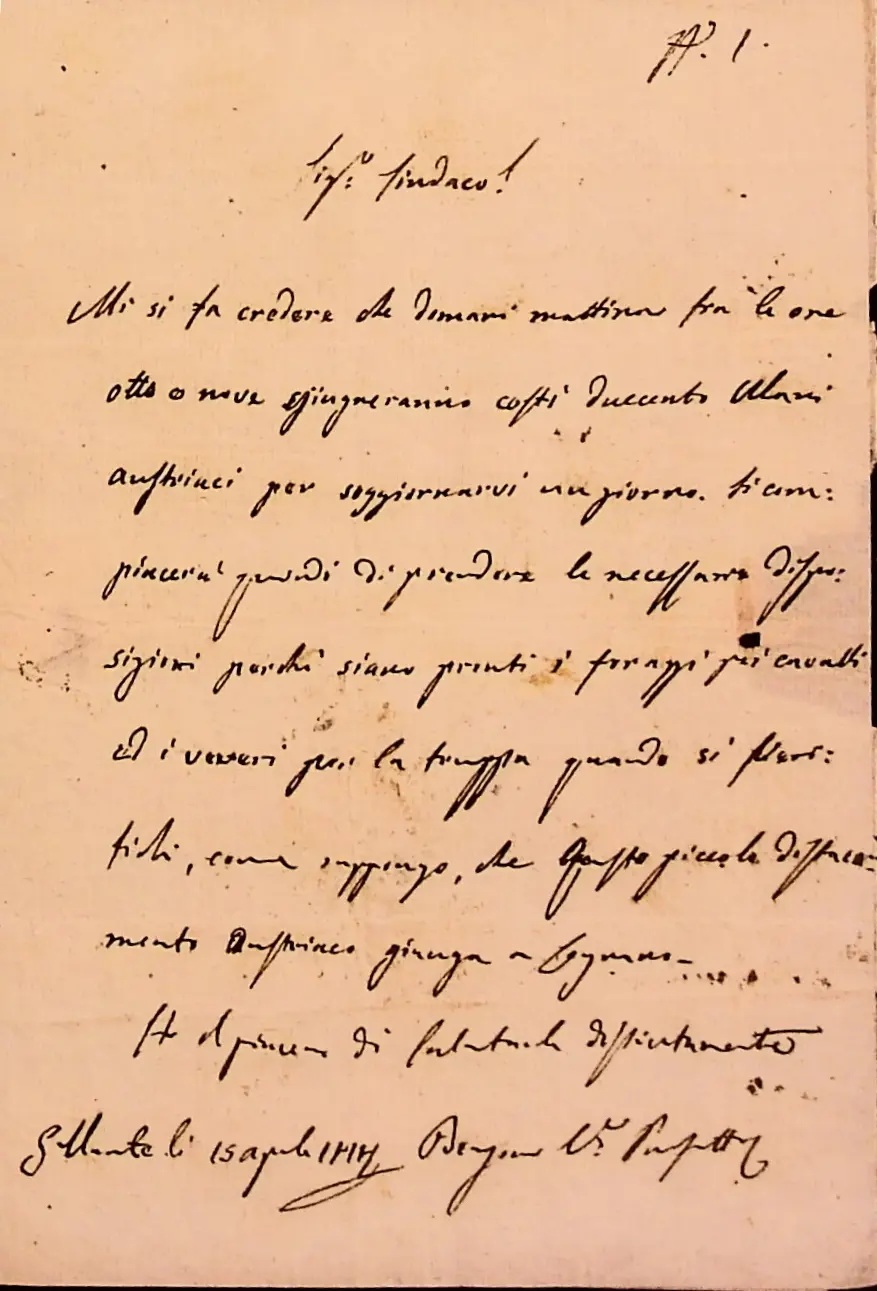 N. 1.
Sig.r Sindaco!
Mi si fa credere che domani mattina fra le ore
otto o nove giungeranno costì duccento Ulani
austriaci per soggiornarvi un giorno. Si com:
piacerà quindi di prendere le necessarie dispo:
sizioni perchè siano pronti i foraggi pei cavalli
ed i viveri per la truppa quando si
, come suppongo, che questo piccolo distacca:
mento Austriaco giunga a
Ho il piacere di salutarla distintamente
li 15 aprile 1814 V.e Prefetto